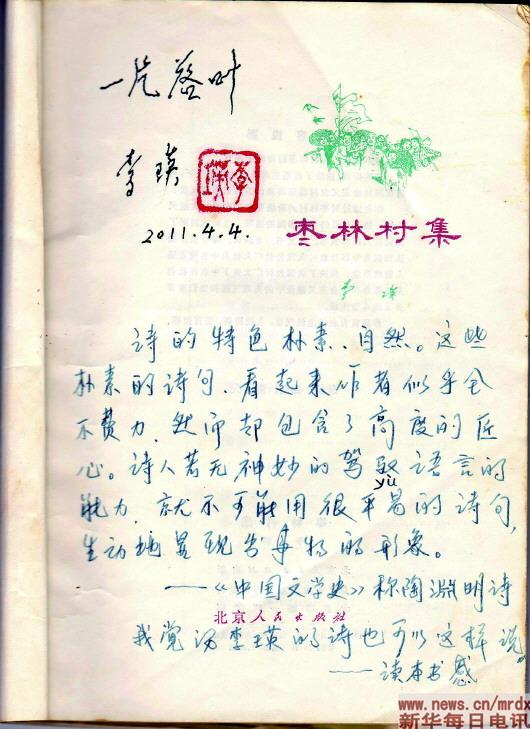 一片落叶
李瑛
李瑛
2011.4.4.
枣林村集
李瑛
诗的特色朴素、自然。这些
朴素的诗句,看起来作者似乎全
不费力,然而却包含了高度的匠
心。诗人若无神妙的驾驭语言的
yù
能力,就不可能用很平易的诗句,
生动地呈现出事物的形象。
——《中国文学史》称陶渊明诗
北京人民出版社
我觉得李瑛的诗也可以这样说。
——读本书感
www.news.cn/mrdx
新华每日电讯